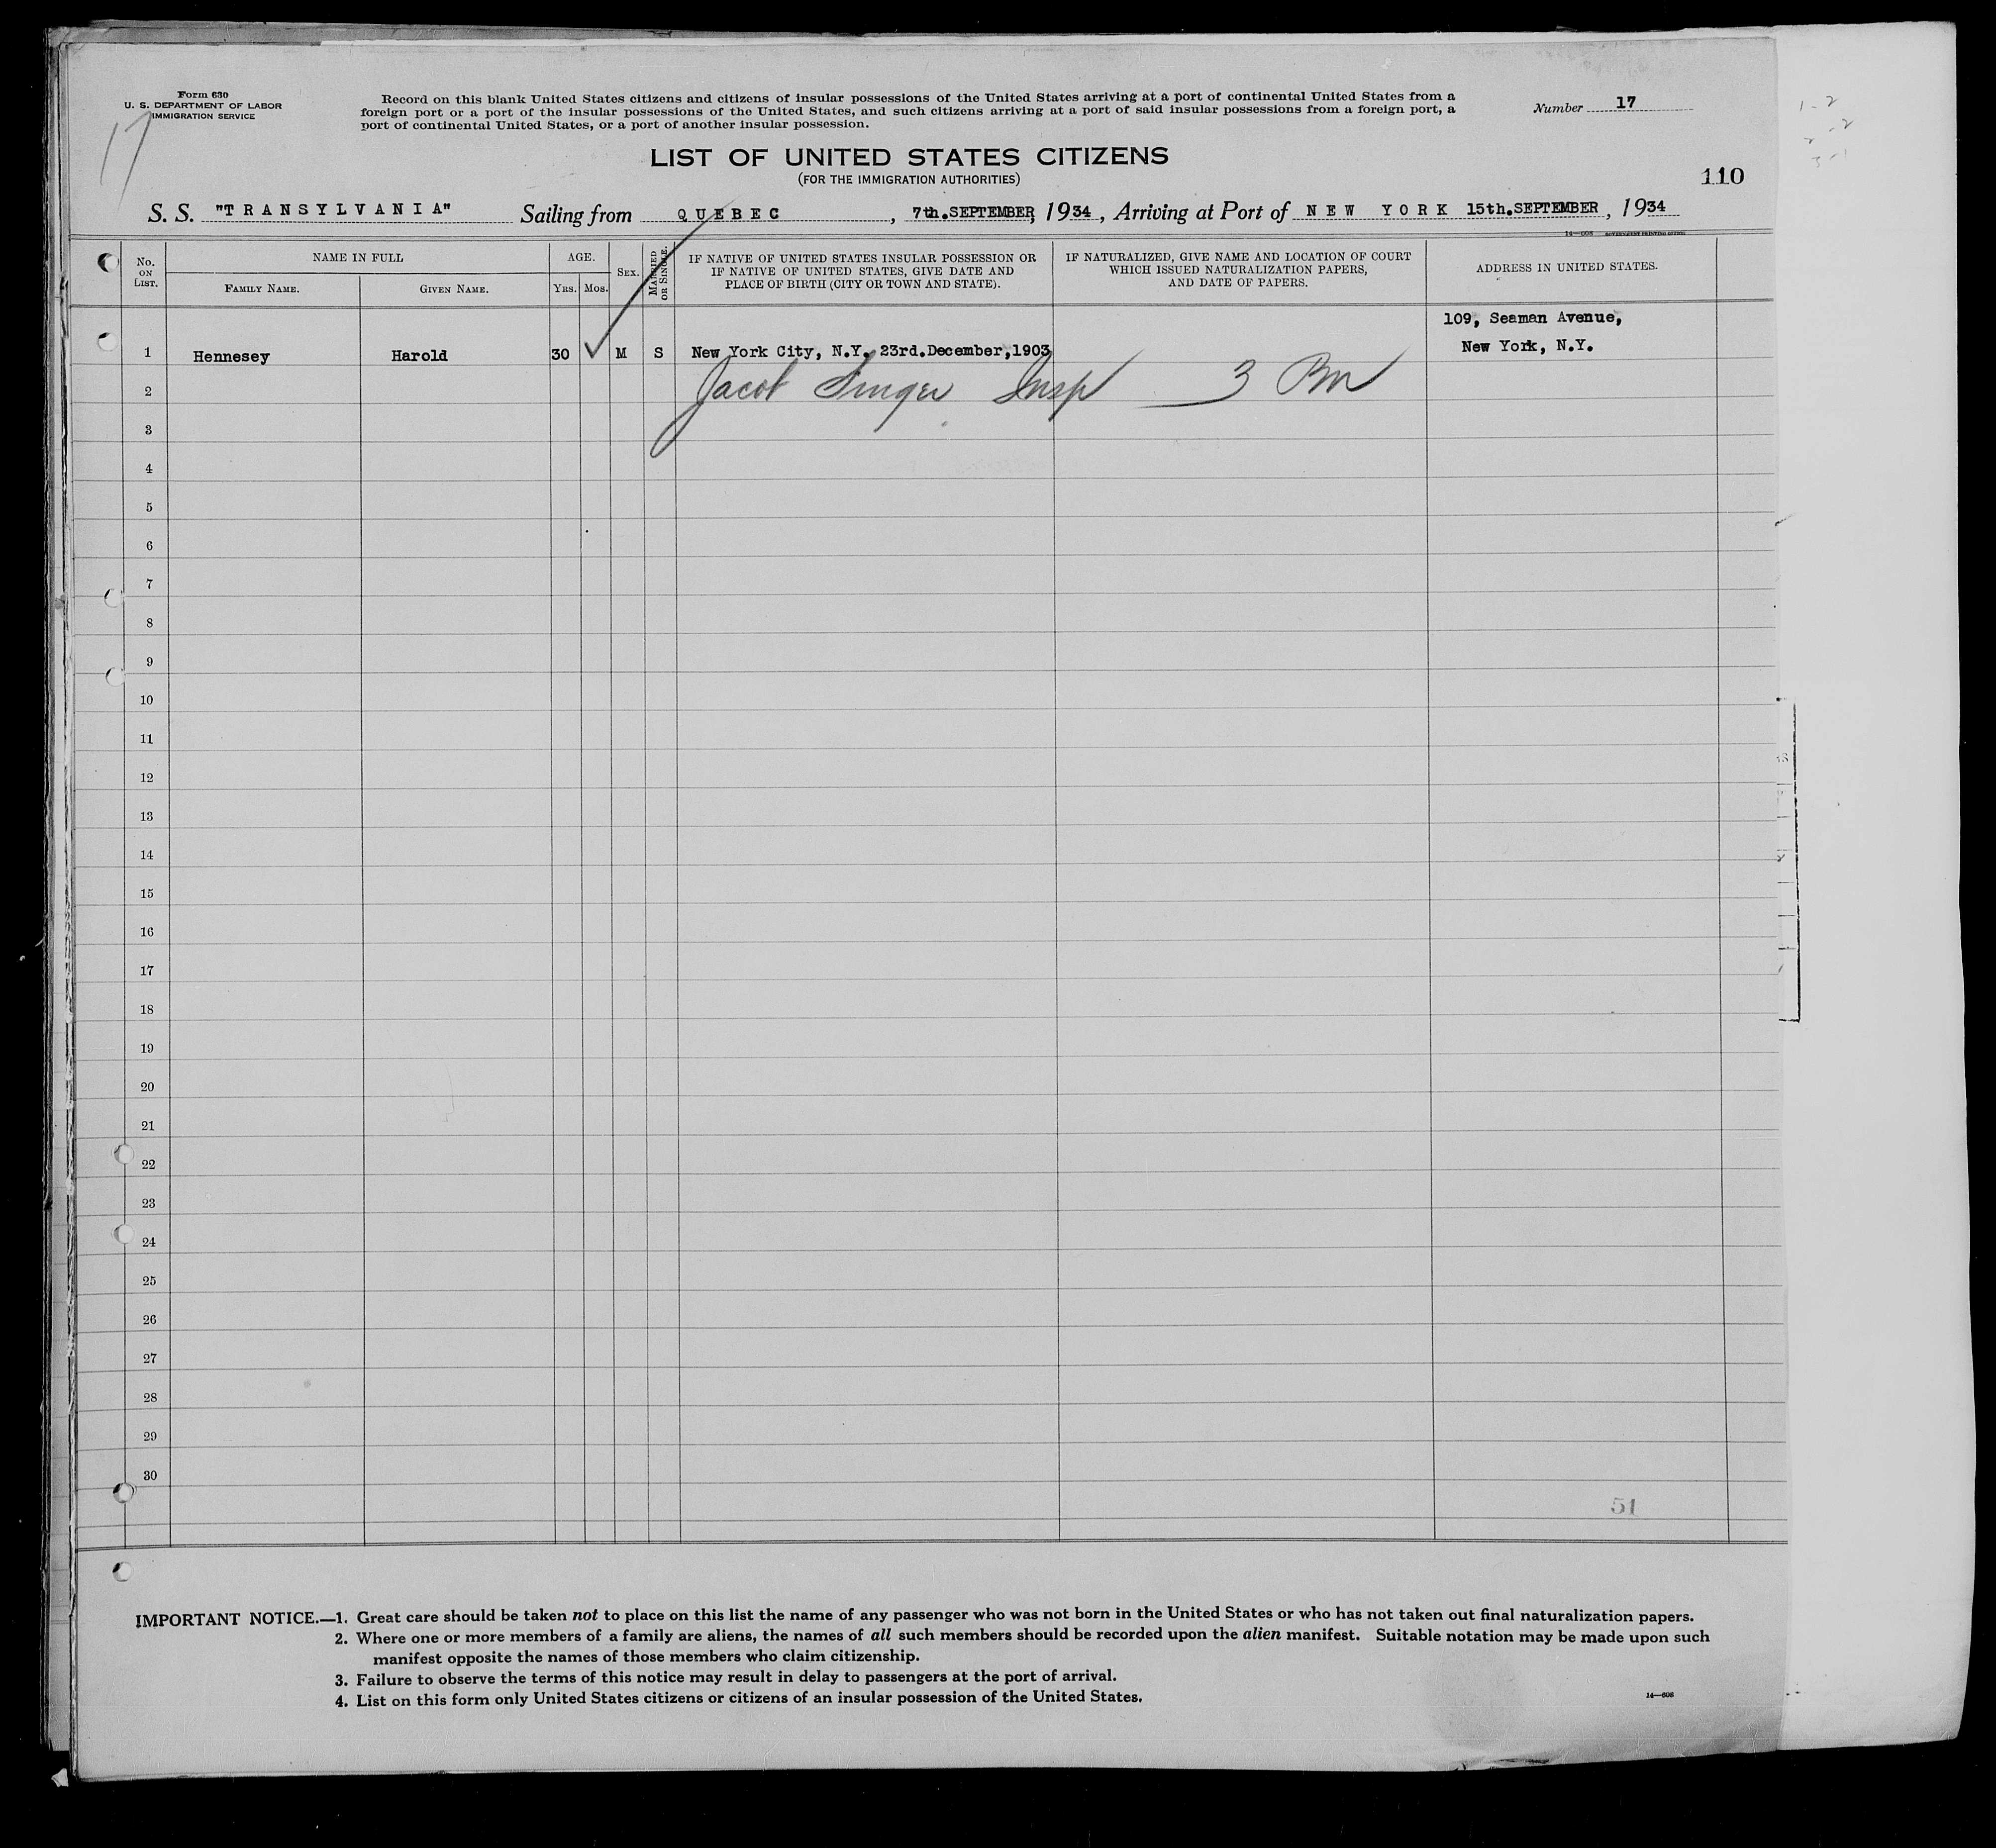 Form 630
U. S. DEPARTMENT OF LABOR
IMMIGRATION SERVICE
17
Record on this blank United States citizens and citizens of insular possessions of the United States arriving at a port of continental United States from a
foreign port or a port of the insular possessions of the United States, and such citizens arriving at a port of said insular possessions from a foreign port, a
port of continental United States, or a port of another insular possession.
Number 17
1-2
2-2
3-1
LIST OF UNITED STATES CITIZENS
(FOR THE IMMIGRATION AUTHORITIES)
110
S. S. "TRANSYLVANIA" Sailing from QUEBEC, 7th.SEPTEMBER, 1934, Arriving at Port of NEW YORK 15th.SEPTEMBER, 1934
14—608 GOVERNMENT PRINTING OFFICE
No. ON LIST.
NAME IN FULL
FAMILY NAME.
GIVEN NAME.
AGE.
YRS.
MOS.
SEX.
MARRIED OR SINGLE.
IF NATIVE OF UNITED STATES INSULAR POSSESSION OR
IF NATIVE OF UNITED STATES, GIVE DATE AND
PLACE OF BIRTH (CITY OR TOWN AND STATE).
IF NATURALIZED, GIVE NAME AND LOCATION OF COURT
WHICH ISSUED NATURALIZATION PAPERS,
AND DATE OF PAPERS.
ADDRESS IN UNITED STATES.
109, Seaman Avenue,
1 Hennesey Harold 30 M S New York City, N.Y. 23rd.December,1903 New York, N.Y.
2 Jacob Singer Insp 3
3
4
5
6
7
8
9
10
11
12
13
14
15
16
17
18
19
20
21
22
23
24
25
26
27
28
29
30
51
IMPORTANT NOTICE.—1. Great care should be taken not to place on this list the name of any passenger who was not born in the United States or who has not taken out final naturalization papers.
2. Where one or more members of a family are aliens, the names of all such members should be recorded upon the alien manifest. Suitable notation may be made upon such
manifest opposite the names of those members who claim citizenship.
3. Failure to observe the terms of this notice may result in delay to passengers at the port of arrival.
4. List on this form only United States citizens or citizens of an insular possession of the United States.
14—608